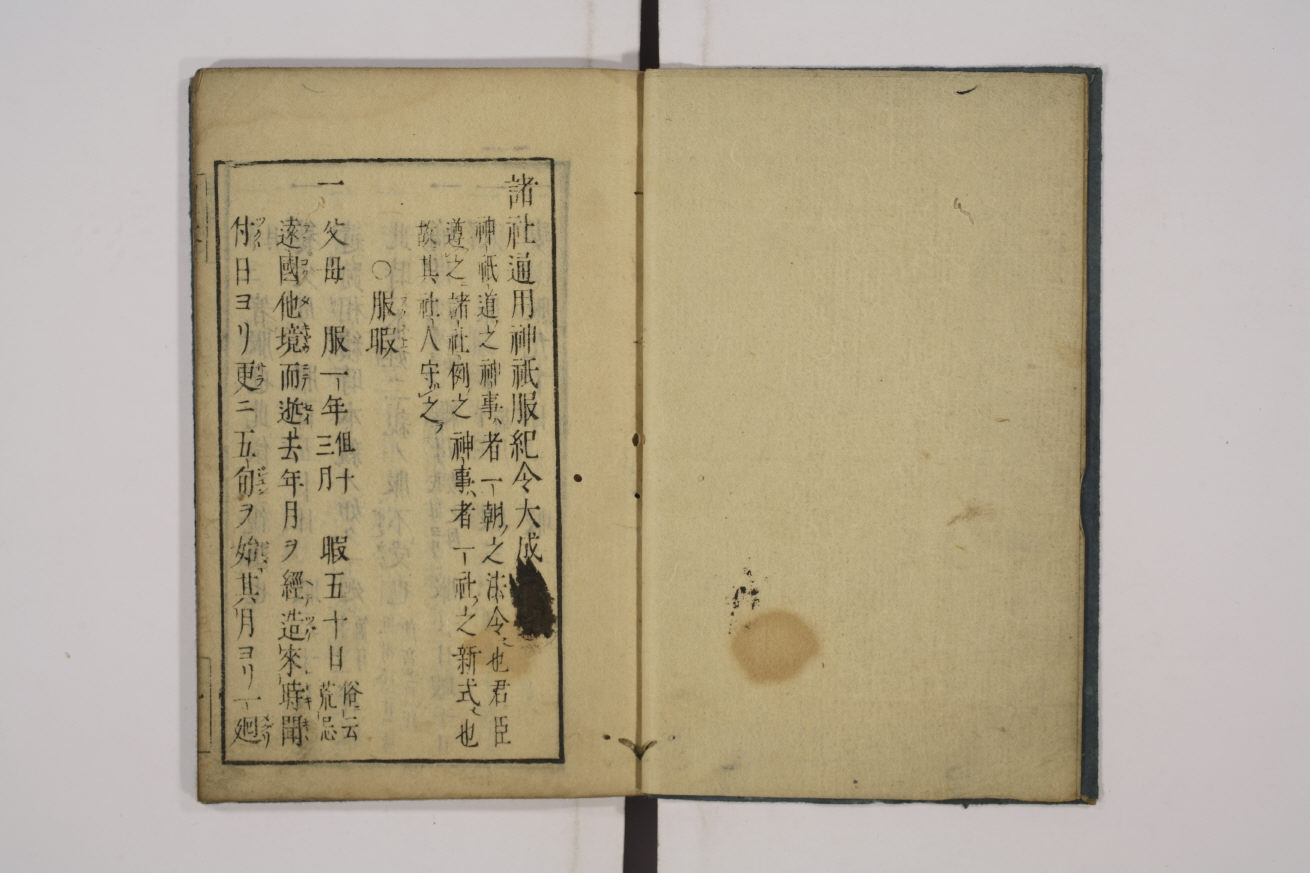 諸社通用神祇服紀令大成
神祇道之神事者一朝之法令也君臣
遵之諸社例之神事者一社之新式也
故其社人守之
○服暇
一父母 服一年但十三月 暇五十日俗云荒忌
遠國他境而逝去年月ヲ經造來時聞
付日ヨリ更ニ五旬ヲ始其月ヨリ一廻